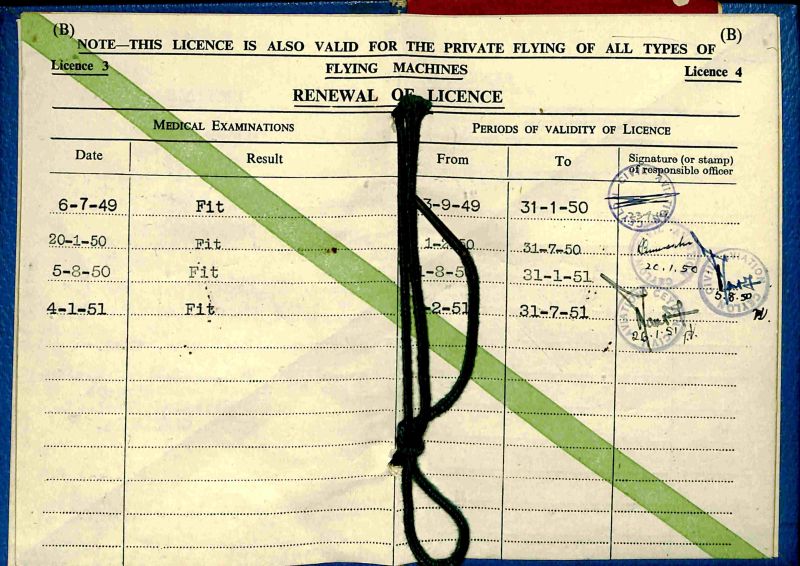 (B) (B)
NOTE—THIS LICENCE IS ALSO VALID FOR THE PRIVATE FLYING OF ALL TYPES OF
Licence 3 FLYING MACHINES Licence 4
RENEWAL OF LICENCE
MEDICAL EXAMINATIONS PERIODS OF VALIDITY OF LICENCE
Date Result From To Signature (or stamp)
of responsible officer
6-7-49 Fit 3-9-49 31-1-50
20-1-50 Fit 1-2-50 31-7-50
20.1.50
5-8-50 Fit 1-8-50 31-1-51
5.8.50
4-1-51 Fit -2-51 31-7-51
26.1.51